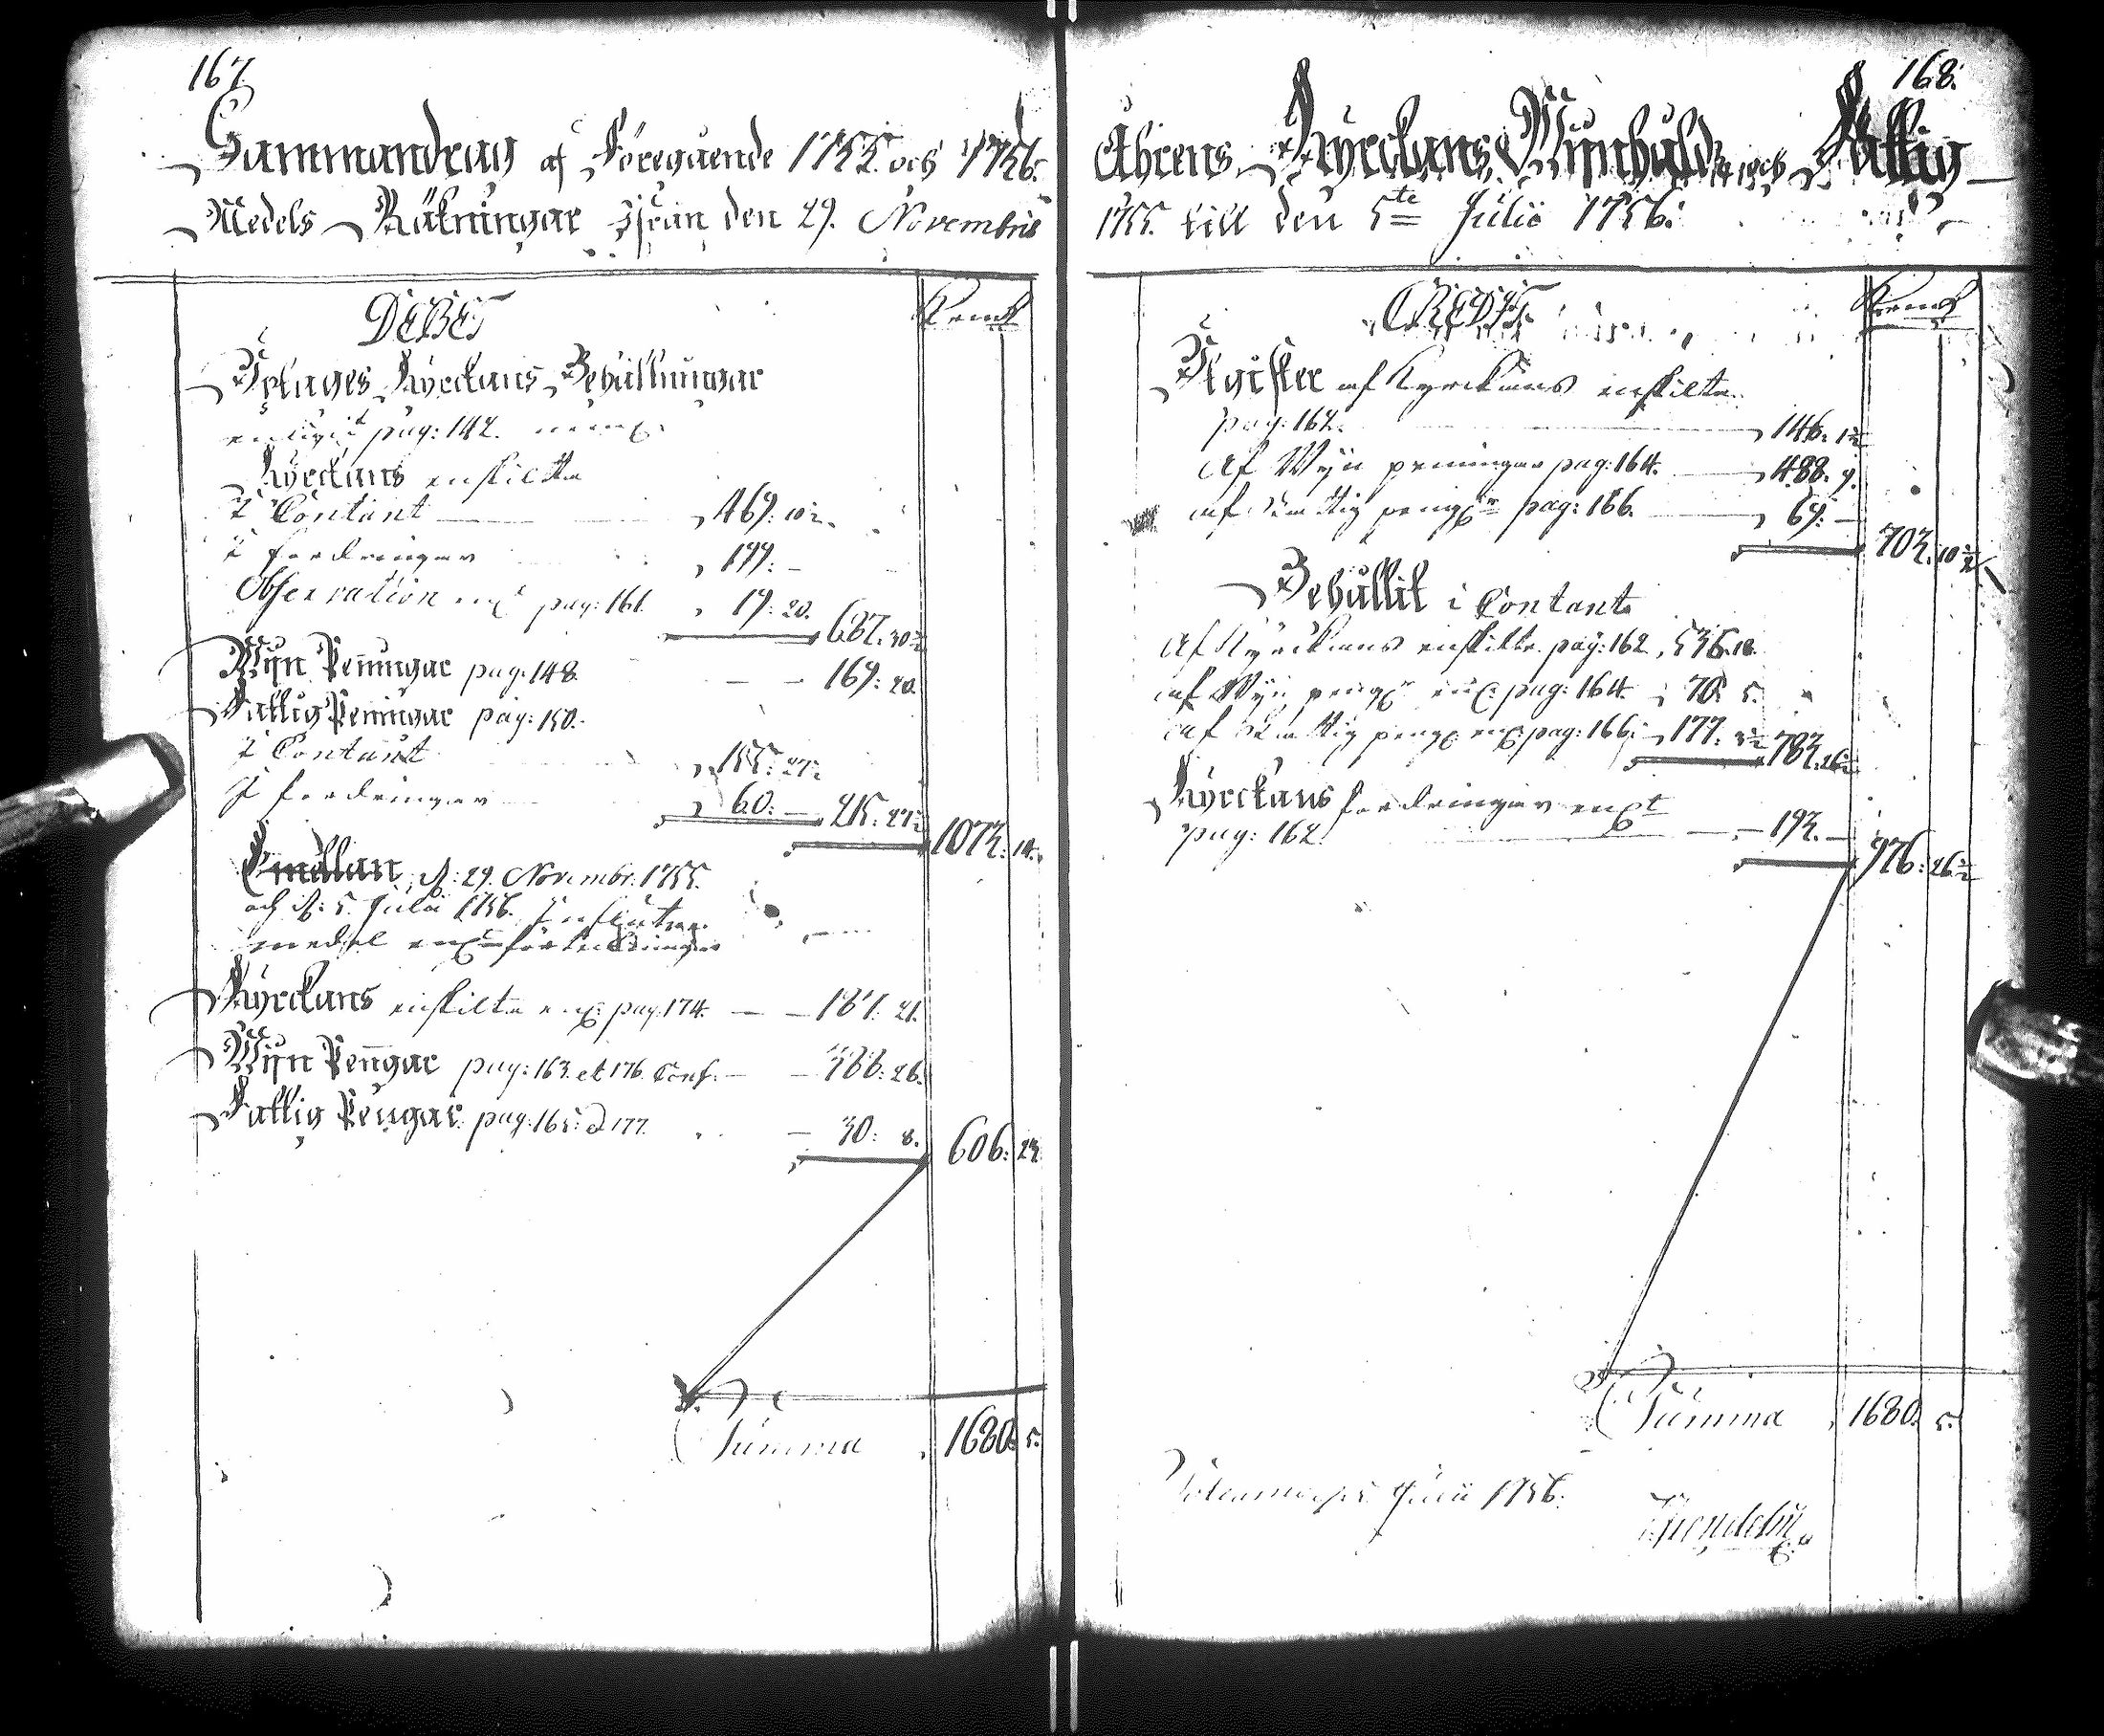 167.
Sammandrag af Föregående 1755 och 1756.
Medels Räkningar ifrån den 29. Novembris
DEBET
Kyrckans Behållningar
pag: 142.
Kyrckans enskilta
I Contant 469: 10½.
I fordringar 199: –
Observation pag: 161. 19: 20. 687: 30½
Wijn Peningar pag: 148. 169: 20.
Fattig Peningar pag: 150.
I Contant 155: 27½
I fordringar 60: – 215: 27½ 1073: 14.
Emällan d: 29. Novembr: 1755.
och d: 5. Julii 1756. Influtne
medel
Kyrckans enskilta pag. 174. 187: 21.
Wijn Pengar pag: 163. et 176. Conf. 388: 26.
Fattig Pengar pag: 165. 177. 30: 8. 606: 23.
Summa 1680: 5.
168.
Åhrens Kyrckans, Wijnhåld och Fattig
1755. till den 5te Julii 1756.
CREDIT
Afgifter af Kyrckans enskilta
pag: 162. 146: 1½
Af Wijn peningar pag: 164. 488: 9.
af Fattig pag: 166. 69: – 703: 10½
Behållit i Contant
Af Kyrckans enskilta pag: 162. 536. 18.
af Wijn pag: 164. 70: 5.
af Fattig pag: 166. 177: 3½ 783: 26½
Kyrckans fordringar
pag: 162. 193. – 976: 26½
Summa 1680. 5.
Julii 1756.